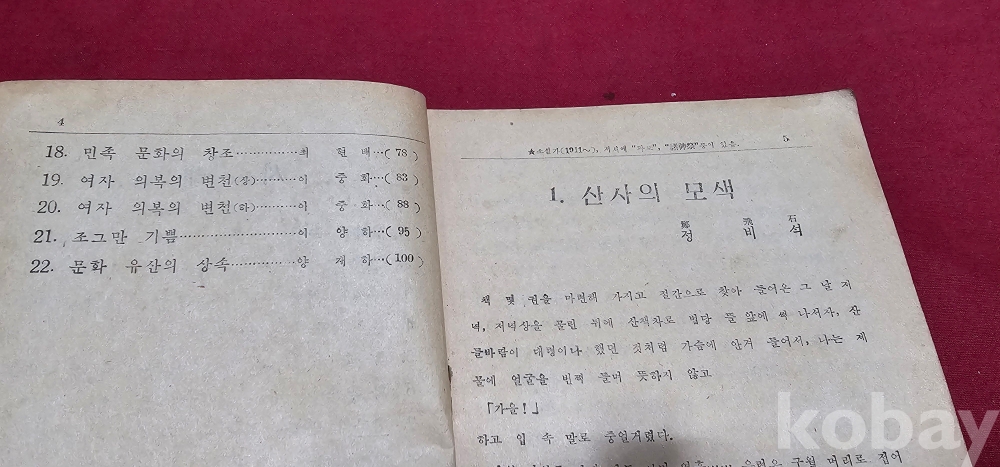 4
18. 민족 문화의 창조……………최 현 배…( 78 )
19. 여자 의복의 변천(상)………이 중 화…( 83 )
20. 여자 의복의 변천(하)………이 중 화…( 88 )
21. 조그만 기쁨……………………이 양 하…( 95 )
22. 문화 유산의 상속……………양 재 하…( 100 )
★소설가(1911~), 저서에 "파도", "諸神祭"등이 있음.
5
1. 산사의 모색
鄭 飛 石
정 비 석
책 몇 권을 마련해 가지고 절간으로 찾아 들어온 그 날 저
녁, 저녁상을 물린 뒤에 산책차로 법당 뜰 앞에 썩 나서자, 산
들바람이 대령이나 했던 것처럼 가슴에 안겨 들어서, 나는 제
물에 얼굴을 번쩍 들며 뜻하지 않고
「가을!」
하고 입 속 말로 중얼거렸다.
구월 머리로 접어
kobay